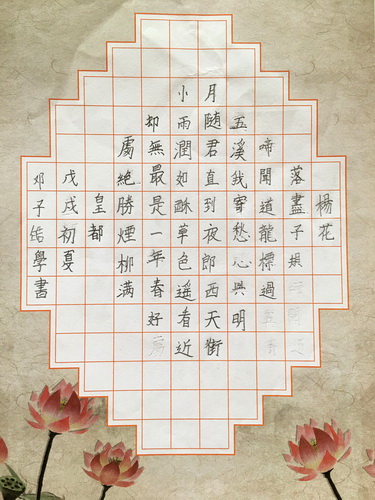 楊花
落盡子規
啼聞道龍標過
五溪我寄愁心與明
月随君直到夜郎西天街
小雨潤如酥草色遥看近
却無最是一年春好
處絕勝煙柳满
皇都
戊戌初夏
邓子學書